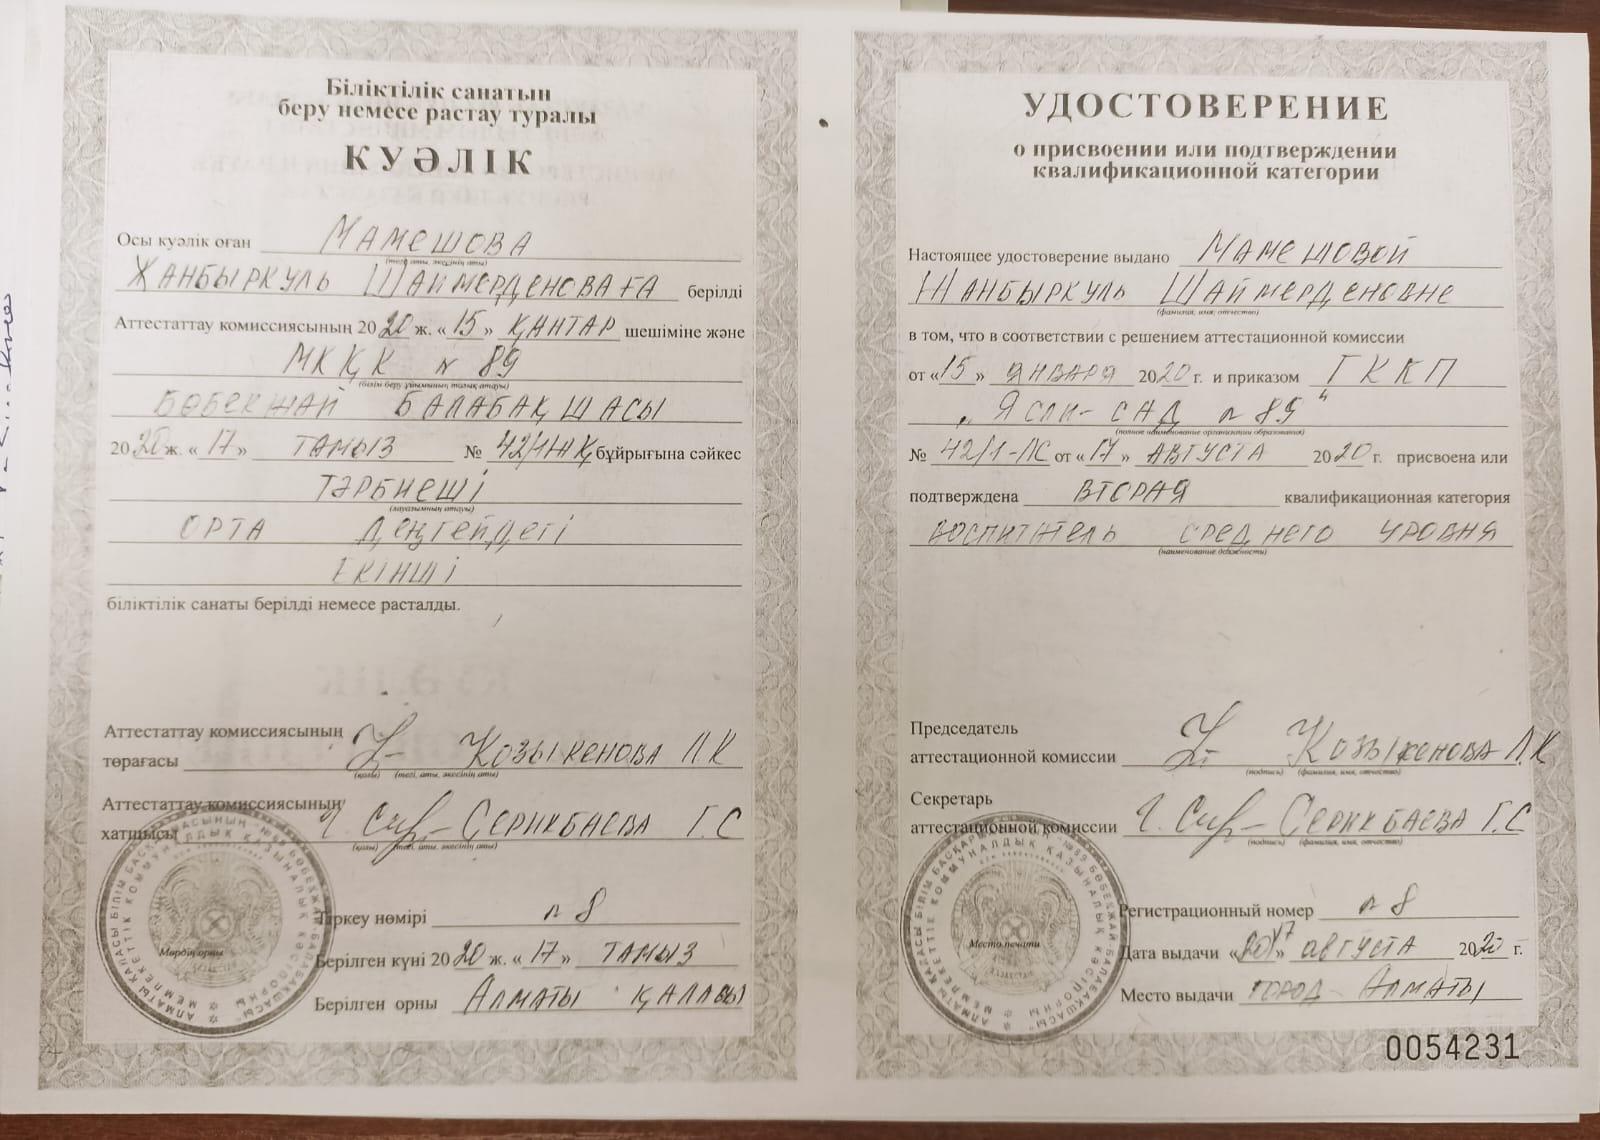 Біліктілік санатын
беру немесе растау туралы
КУӘЛІК
Осы куәлік оған МАМЕШОВА
(тегі, аты, әкесінің аты)
ЖАНБЫРКУЛЬ ШАЙМЕРДЕНОВАҒА берілді
Аттестаттау комиссиясының 2020 ж. «15» ҚАНТАР шешіміне және
МКҚК №89
(білім беру ұйымының толық атауы)
БӨБЕКЖАЙ БАЛАБАҚШАСЫ
2020 ж. «17» ТАМЫЗ № 42/1ЖҚ бұйрығына сәйкес
ТӘРБИЕШІ
(лауазымның атауы)
ОРТА ДЕҢГЕЙДЕГІ
ЕКІНШІ
біліктілік санаты берілді немесе расталды.
Аттестаттау комиссиясының
төрағасы КОЗЫКЕНОВА Л.К
(қолы) (тегі, аты, әкесінің аты)
Аттестаттау комиссиясының
хатшысы СЕРИКБАЕВА Г.С
(қолы) (тегі, аты, әкесінің аты)
Тіркеу нөмірі №8
Мөрдің орны
Берілген күні 2020 ж. «17» ТАМЫЗ
Берілген орны АЛМАТЫ ҚАЛАСЫ
УДОСТОВЕРЕНИЕ
о присвоении или подтверждении
квалификационной категории
Настоящее удостоверение выдано МАМЕШОВОЙ
ЖАНБЫРКУЛЬ ШАЙМЕРДЕНОВНЕ
(фамилия, имя, отчество)
в том, что в соответствии с решением аттестационной комиссии
от «15» ЯНВАРЯ 2020 г. и приказом ГККП
„ЯСЛИ-САД №89"
(полное наименование организации образования)
№ 42/1-ЛС от «17» АВГУСТА 2020 г. присвоена или
подтверждена ВТОРАЯ квалификационная категория
ВОСПИТАТЕЛЬ СРЕДНЕГО УРОВНЯ
(наименование должности)
Председатель
аттестационной комиссии КОЗЫКЕНОВА Л.К
(подпись) (фамилия, имя, отчество)
Секретарь
аттестационной комиссии СЕРИКБАЕВА Г.С
(подпись) (фамилия, имя, отчество)
Регистрационный номер №8
Место печати
Дата выдачи «17» АВГУСТА 2020 г.
Место выдачи ГОРОД АЛМАТЫ
0054231